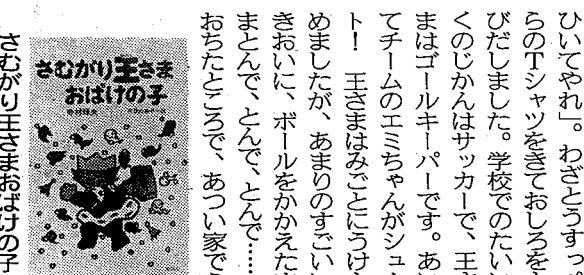 ひいてやれ」。わざとうすっ
らのTシャツをきておしろを
びだしました。学校でのたい
くのじかんはサッカーで、王
まはゴールキーパーです。あ
てチームのエミちゃんがシュ
ト!　王さまはみごとにうけ
めましたが、あまりのすごい
きおいに、ボールをかかえた
まとんで、とんで、とんで……
おちたところで、あつい家で
さむがり王さま
おばけの子
さむがり王さまおばけの子